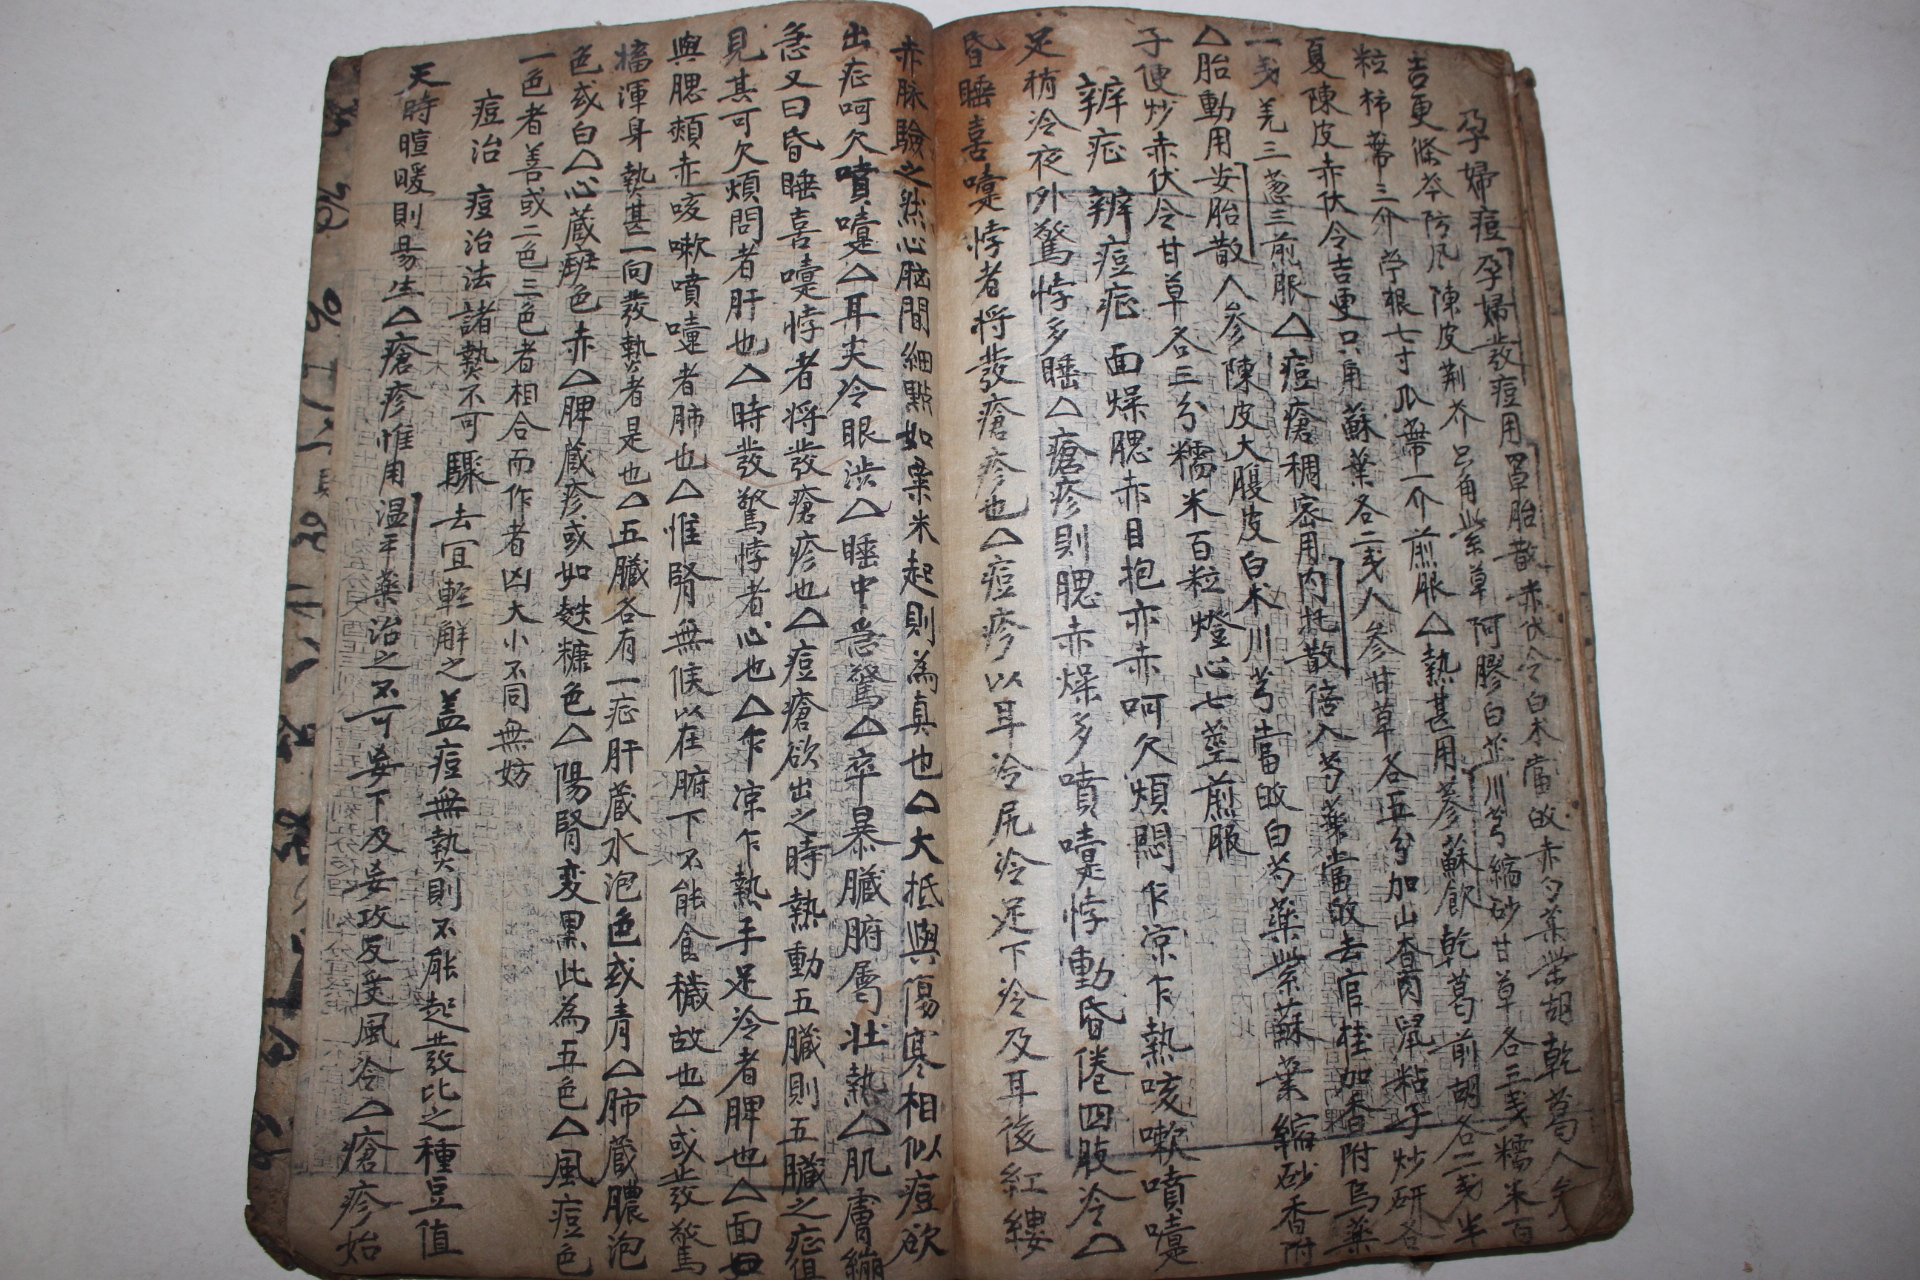 孕婦痘 孕婦發痘用罩胎散 赤伏令白朮當皈赤勺藥柴胡乾葛人參
吉更條芩防風陳皮荊芥只角紫草阿膠白芷川芎縮砂甘草各三戔糯米百
粒柿蒂三介苧根七寸瓜蒂一介煎服△熱甚用蔘蘇飮乾葛前胡各二戔半
夏陳皮赤伏令吉更只角蘇葉各二戔人參甘草各五分加山查肉鼠粘子炒研各
一戔羌三葱三煎服△痘瘡稠密用內托散倍入芍藥當皈去官桂加香附烏藥
△胎動用安胎散人參陳皮大腹皮白朮川芎當皈白芍藥紫蘇葉縮砂香附
子便炒赤伏令甘草各三分糯米百粒燈心七莖煎服
辨症 辨痘症 面燥腮赤目抱亦赤呵欠煩悶乍凉乍熱咳嗽噴嚏
足稍冷夜外驚悸多睡△瘡疹則腮赤燥多噴嚏悸動昏倦四肢冷△
昏睡喜嚏悸者將發瘡疹也△痘疹以耳冷尻冷足下冷及耳後紅縷
赤脉驗之然心腦間細點如粟米起則為真也△大抵與傷寒相似痘欲
出症呵欠噴嚏△耳尖冷眼澁△睡中急驚△卒暴臟腑屬壯熱△肌膚繃
急又曰昏睡喜嚏悸者將發瘡疹也△痘瘡欲出之時熱動五臟則五臟之症俱
見其可欠煩問者肝也△時發驚悸者心也△乍凉乍熱手足冷者脾也△面如
與腮頰赤咳嗽噴嚏者肺也△惟腎無候以在腑下不能食穢故也△或發驚
搐渾身熱甚一向發熱者是也△五臟各有一症肝蔵水泡色或青△肺蔵膿泡
色或白△心蔵斑色赤△脾蔵疹或如麩糠色△陽腎変黒此為五色△風痘色
一色者善或二色三色者相合而作者凶大小不同無妨
痘治 痘治法諸熱不可驟去宜輕解之盖痘無熱則不能起發比之種豆値
天時暄暖則昜生△瘡疹惟用温平藥治之不可妄下及妄攻反受風冷△瘡疹始